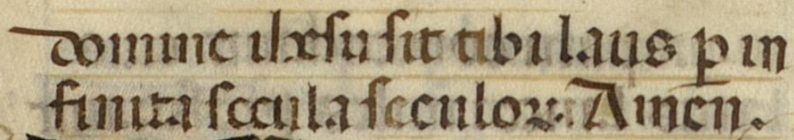 domine ihesu sit tibi laus ꝑ in
finita secula seculoꝝ. Amen.